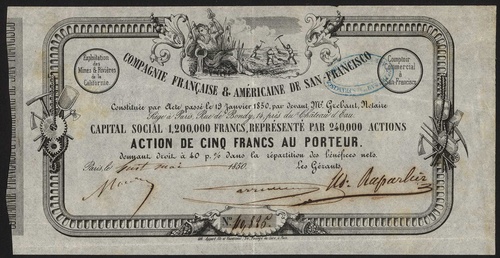 Exploitation
des
Mines & Rivières
de la
Californie
COMPAGNIE FRANÇAISE & AMÉRICAINE DE SAN-FRANCISCO
Comptoir
Commercial
à
San-Francisco
Constituée par Acte passé le 19 Janvier 1850, par devant Mr. Grebaut, Notaire
Siège à Paris, Rue de Bondy, 14, près du Château d'Eau
CAPITAL SOCIAL 1,200,000 FRANCS, REPRÉSENTÉ PAR 240,000 ACTIONS
ACTION DE CINQ FRANCS AU PORTEUR.
donnant droit à 40 p.% dans la répartition des bénéfices nets.
Paris, le huit mai 1850. Les Gérants,
No